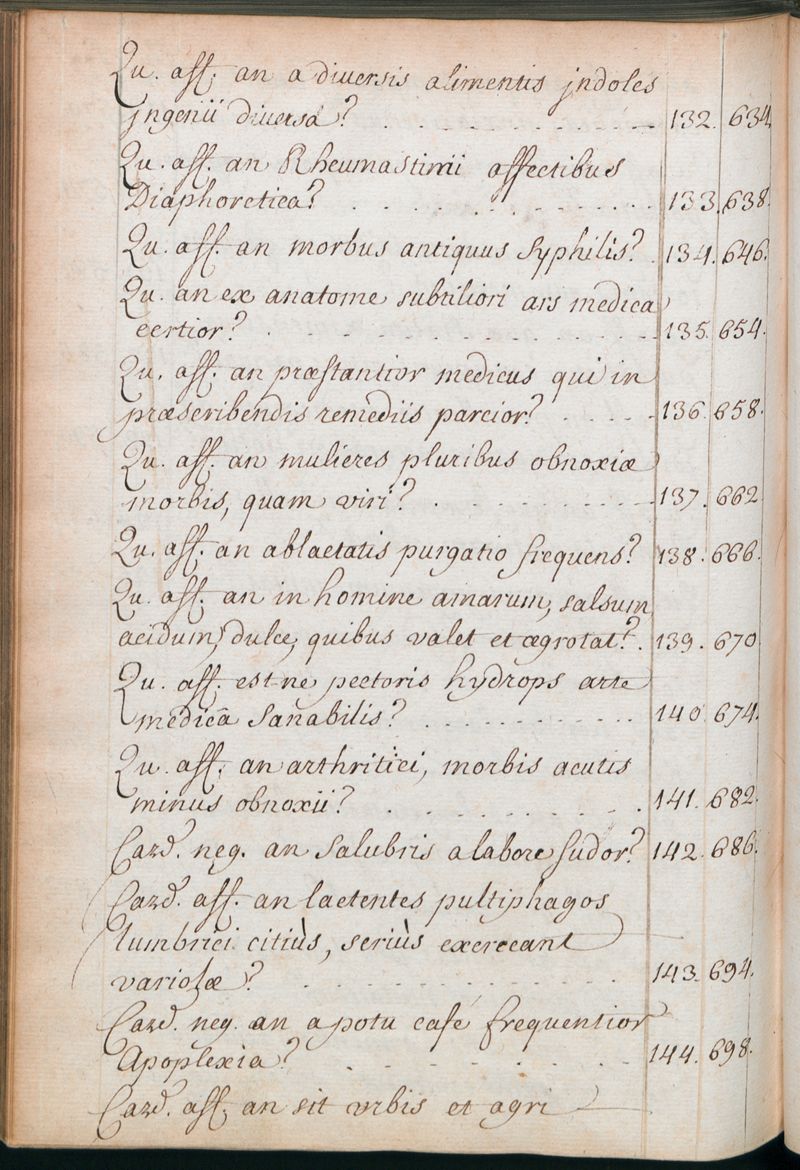 Qu. aff. an a diversis alimentis jndoles
jngenii diversa? 132. 634
Qu. aff. an Rheumastimi affectibus
Diaphoretica? 133. 638.
Qu. aff. an morbus antiquus Syphilis? 134. 646.
Qu. an ex anatome subtiliori ars medica
certior? 135. 654.
Qu. aff. an præstantior medicus qui in
præscribendis remediis parcior? 136. 658.
Qu. aff. an mulieres pluribus obnoxiæ
morbis, quam viri? 137. 662
Qu. aff. an ablactatis purgatio frequens? 138. 666.
Qu. aff. an in homine amarum, salsum
acidum, dulce, quibus valet et ægrotat? 139. 670
Qu. aff. est ne pectoris hydrops arte
medicâ Sanabilis? 140. 674.
Qu. aff. an arthritici, morbis acutis
minus obnoxii? 141. 682.
Card. neg. an Salubris a labore Sudor? 142. 686.
Card. aff. an lactentes pultiphagos
lumbrici citiùs, seriùs exerceant
variolæ? 143. 694.
Card. neg. an a potu café frequentior
Apoplexia? 144. 698.
Card. aff. an sit urbis et agri